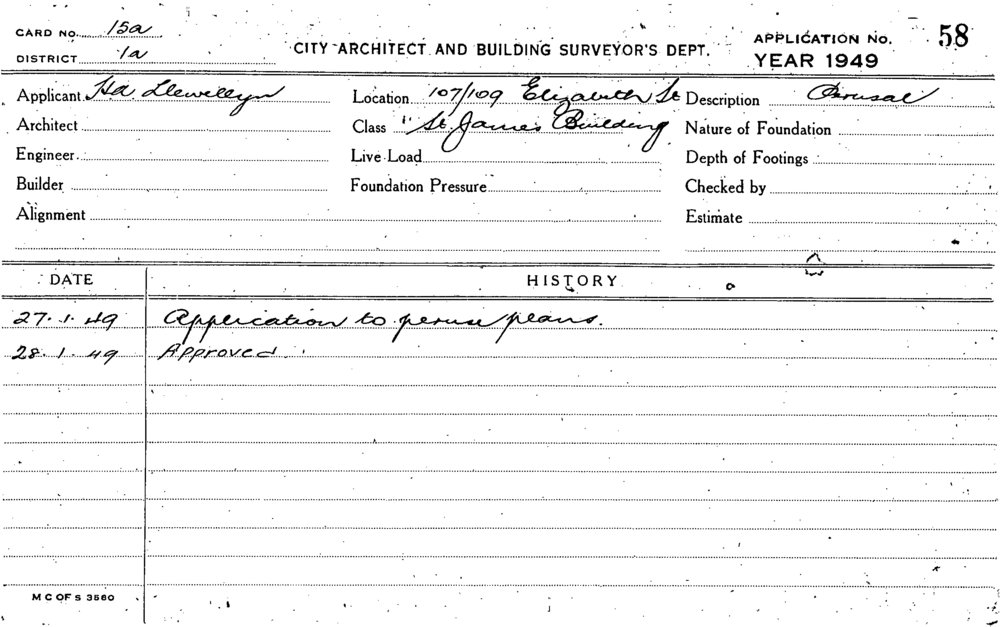 CARD No. 15a
DISTRICT 1a
CITY ARCHITECT AND BUILDING SURVEYOR'S DEPT.
APPLICATION No. 58
YEAR 1949
Applicant Llewellyn
Architect
Engineer
Builder
Alignment
Location 107/109 Elizabeth St
Class "St. James Building
Live Load
Foundation Pressure
Description Perusal
Nature of Foundation
Depth of Footings
Checked by
Estimate
DATE HISTORY
27.1.49 Application to peruse plans.
28.1.49 Approved
M C OF S 3560